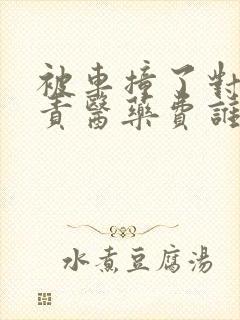 被車撞了對
責醫藥費誰
水煮豆腐湯